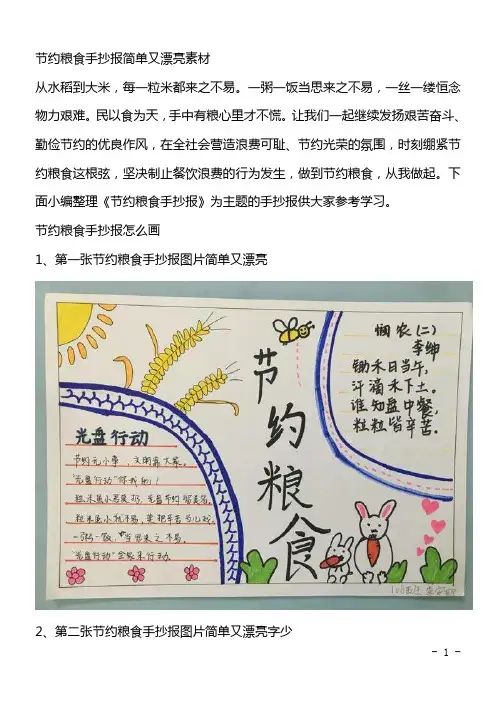 节约粮食手抄报简单又漂亮素材
从水稻到大米，每一粒米都来之不易。一粥一饭当思来之不易，一丝一缕恒念
物力艰难。民以食为天，手中有粮心里才不慌。让我们一起继续发扬艰苦奋斗、
勤俭节约的优良作风，在全社会营造浪费可耻、节约光荣的氛围，时刻绷紧节
约粮食这根弦，坚决制止餐饮浪费的行为发生，做到节约粮食，从我做起。下
面小编整理《节约粮食手抄报》为主题的手抄报供大家参考学习。
节约粮食手抄报怎么画
1、第一张节约粮食手抄报图片简单又漂亮
节约粮食
悯农(二)
李绅
锄禾日当午，
汗滴禾下土。
谁知盘中餐，
粒粒皆辛苦。
光盘行动
文明靠大家。
"光盘行动"
粒米虽小君莫扔，
粒米虽小犹不易，莫把辛苦当儿戏。
一粥一饭，当思来之不易。
"光盘行动"全家来行动。
2、第二张节约粮食手抄报图片简单又漂亮字少
- 1 -